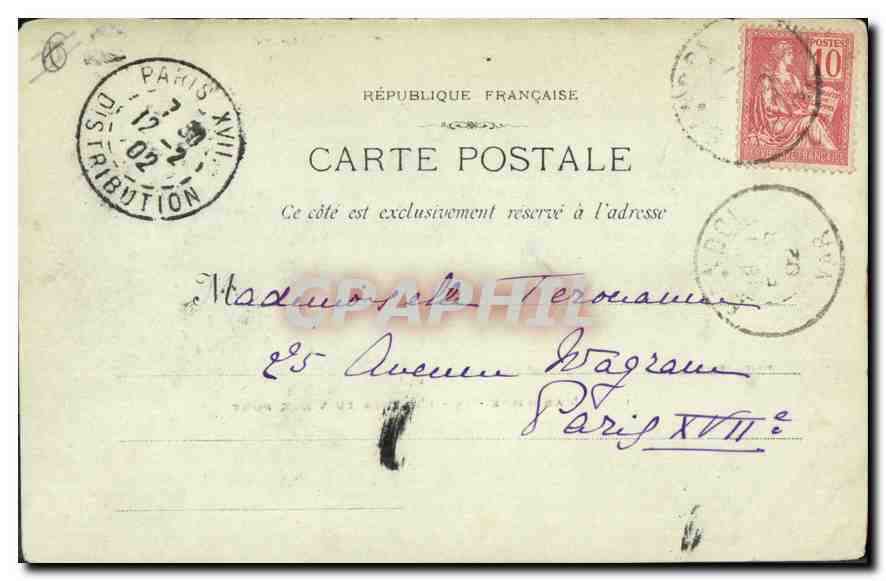 PARIS XVII
DISTRIBUTION
7 30
12 - 2
02
POSTES
10
RÉPUBLIQUE FRANÇAISE
CARTE POSTALE
Ce côté est exclusivement réservé à l'adresse
VAR
CPAPHIL
Mademoiselle
25 Avenue Wagram
Paris XVIIe